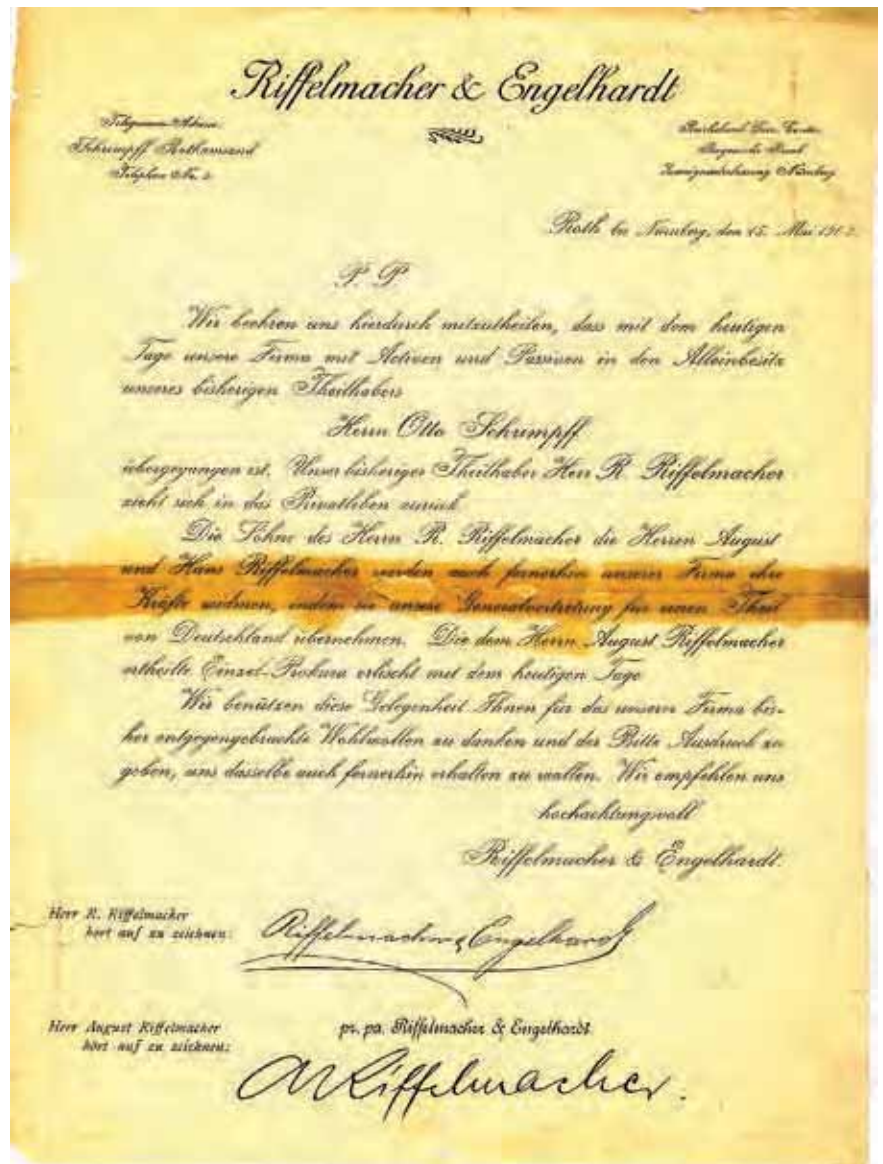 Riffelmacher & Engelhardt
Telegramm-Adresse:
Schrimpff Rothamsand
Telephon No. 2
Reichsbank Giro Conto
Bayerische Bank
Zweigniederlassung Nürnberg
Roth bei Nürnberg, den 15. Mai
P. P.
Wir beehren uns hierdurch mitzutheilen, dass mit dem heutigen
Tage unsere Firma mit Activen und Passiven in den Alleinbesitz
unseres bisherigen Theilhabers
Herrn Otto Schrimpff
übergegangen ist. Unser bisheriger Theilhaber Herr R. Riffelmacher
zieht sich in das Privatleben zurück.
Die Söhne des Herrn R. Riffelmacher die Herren August
und Hans Riffelmacher werden auch fernerhin unserer Firma ihre
Kräfte widmen, indem sie unsere Generalvertretung für einen Theil
von Deutschland übernehmen. Die dem Herrn August Riffelmacher
ertheilte Einzel-Prokura erlischt mit dem heutigen Tage.
Wir benützen diese Gelegenheit Ihnen für das unserer Firma bis-
her entgegengebrachte Wohlwollen zu danken und der Bitte Ausdruck zu
geben, uns dasselbe auch fernerhin erhalten zu wollen. Wir empfehlen uns
hochachtungsvoll
Riffelmacher & Engelhardt.
Herr R. Riffelmacher
hört auf zu zeichnen:
Riffelmacher & Engelhardt
Herr August Riffelmacher
hört auf zu zeichnen:
pr. pa. Riffelmacher & Engelhardt
A Riffelmacher.